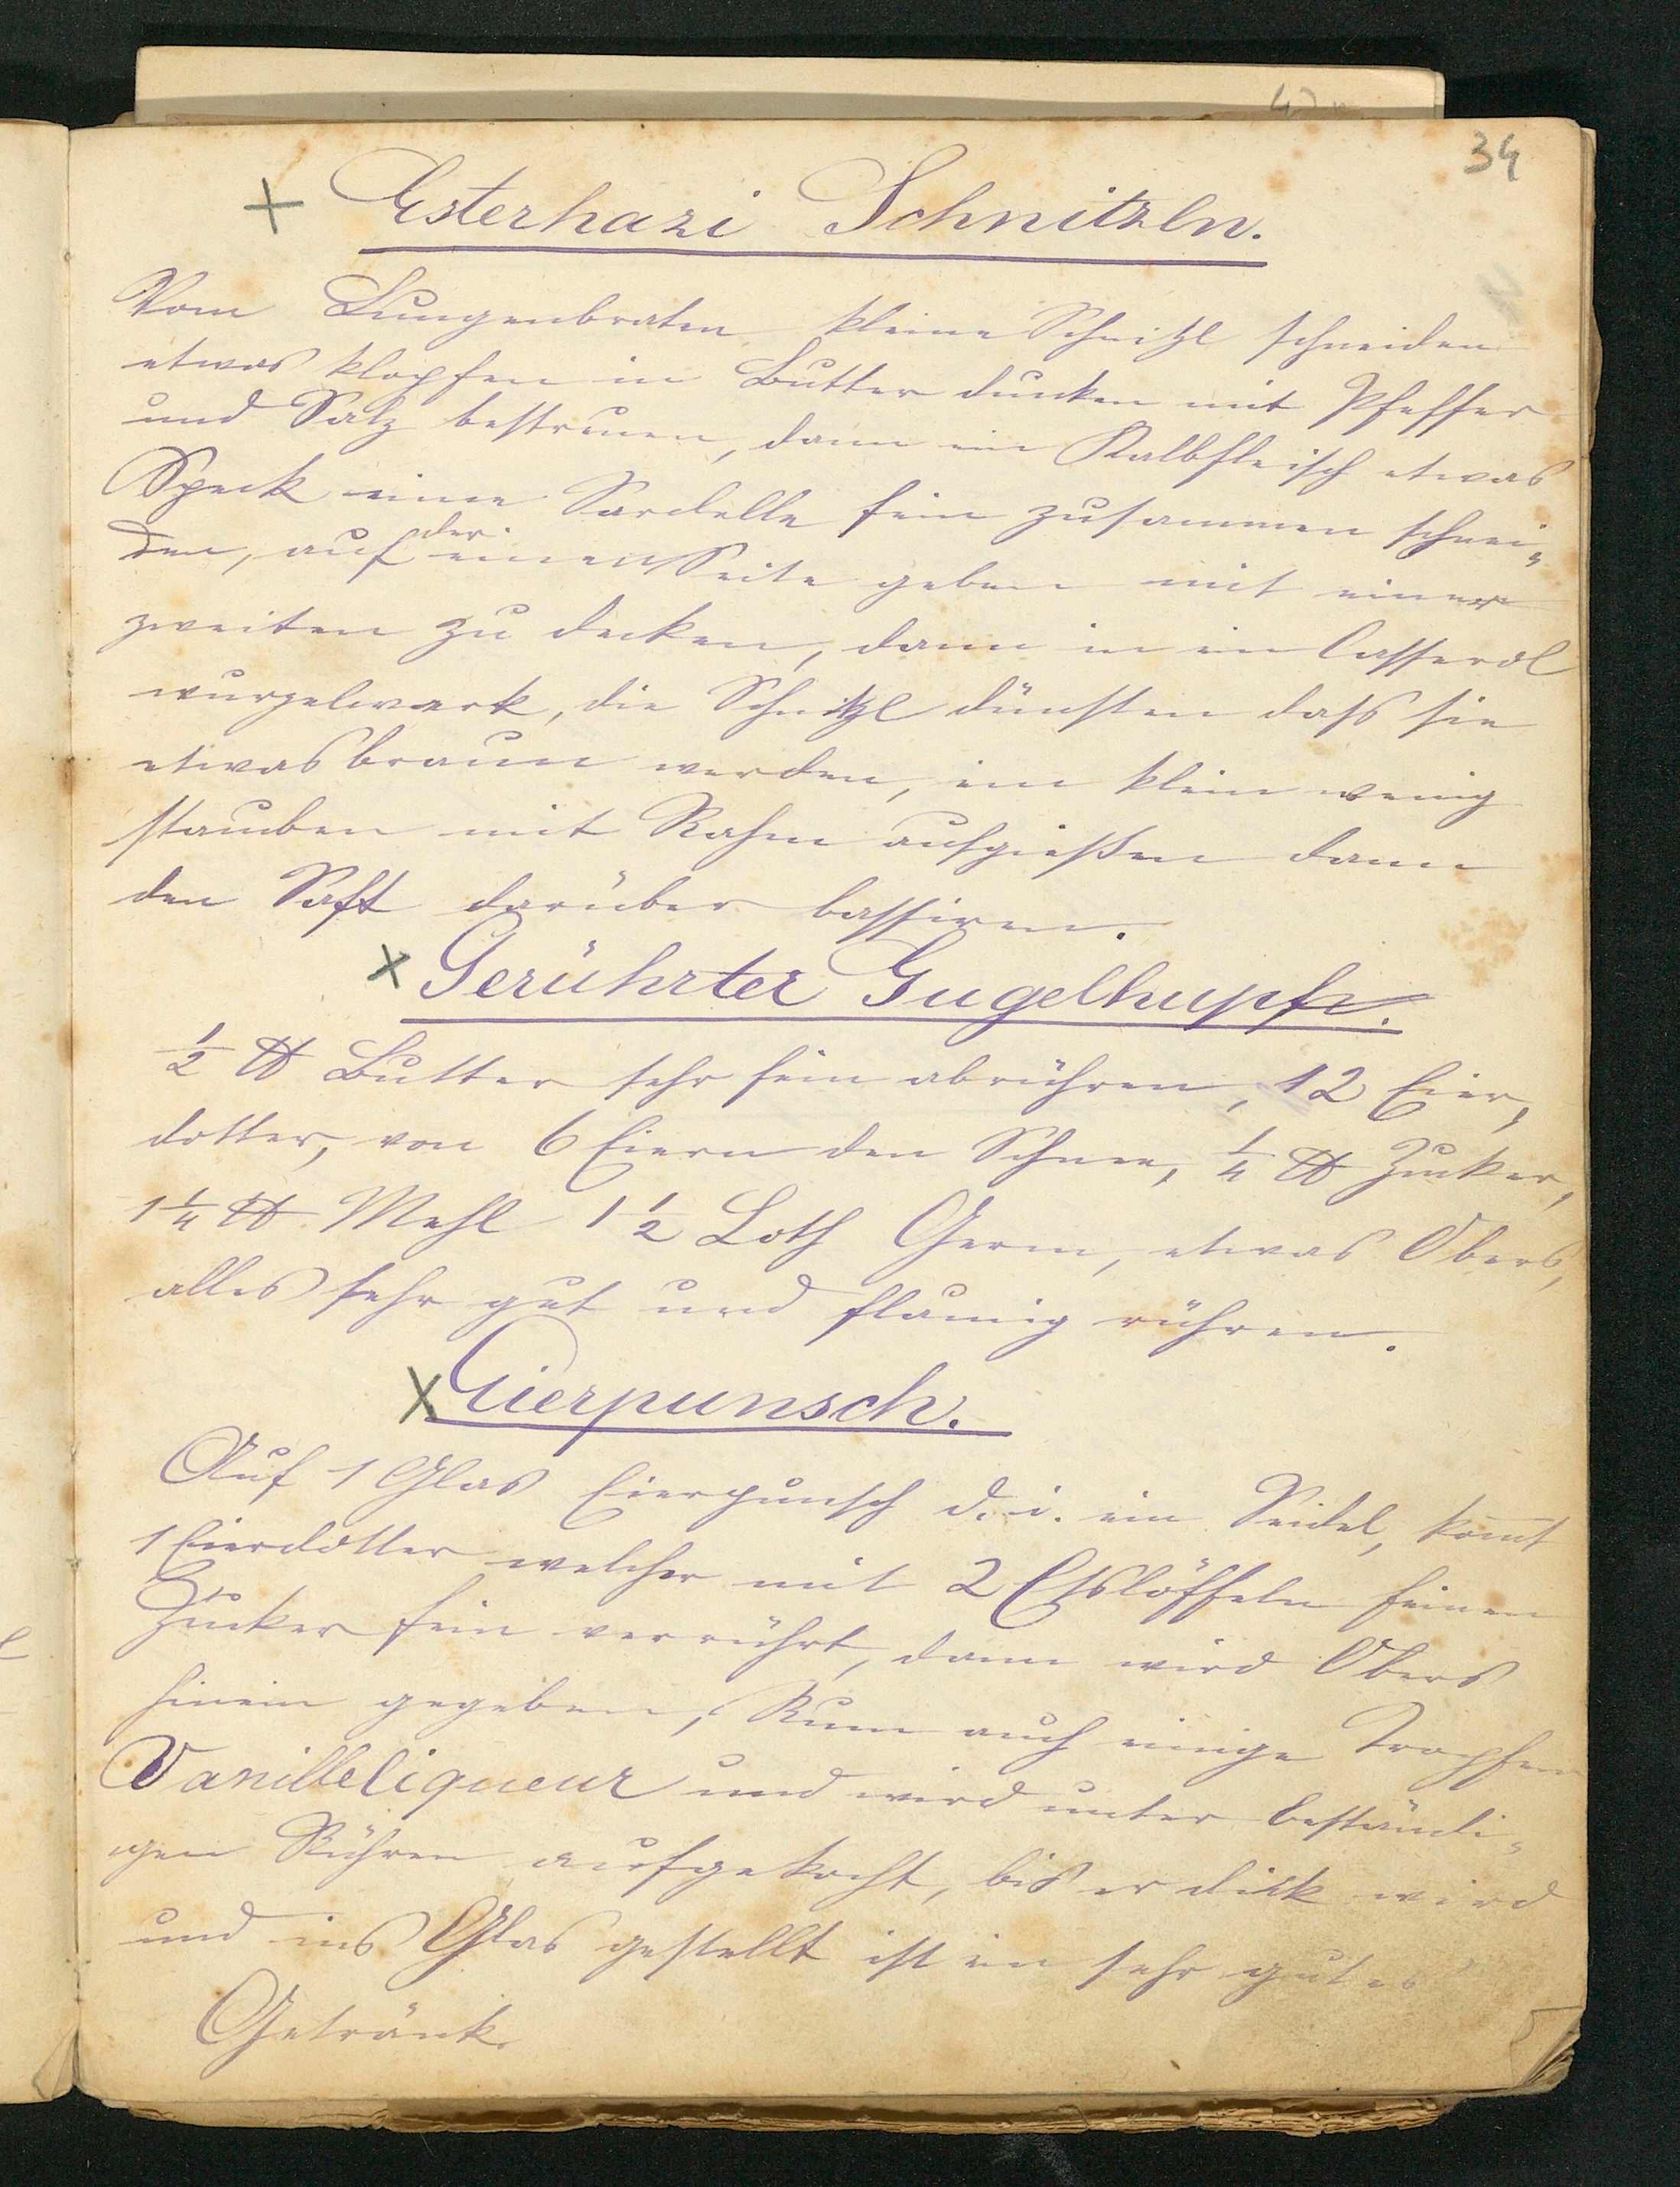 34
+ Esterhazi Schnitzln.
Vom Lungenbraten kleine Schnitzl schneiden
etwas klopfen in Butter duncken mit Pfeffer
und Salz bestreuen, dann ein Kalbfleisch etwas
Speck eine Sardelle fein zusammen schnei„
den, auf der einen Seite geben mit einer
zweiten zu decken, dann in ein Casserol
wurzelwerk, die Schnitzl dünsten daß sie
etwas braun werden, ein klein wenig
stauben mit Rahm aufgießen dann
den Saft darüber bassiren.
x Gerührter Gugelhupf.
½ ℔ Butter sehr fein abrühren, 12 Eier„
dotter, von 6 Eiern den Schnee, ¼ ℔ Zucker,
1¼ ℔ Mehl 1½ Loth Germ, etwas Obers,
alles sehr gut und flaumig rühren.
x Eierpunsch.
Auf 1 Glas Eierpunsch d. i. ein Seidel, kom̄t
1 Eierdotter welcher mit 2 Eßlöffeln feinen
Zucker fein verrührt, dann wird Obers
hinein gegeben, Rum auch einige Tropfen
Vanilleliqueur und wird unter beständi„
gen Rühren aufgekocht, bis er dick wird
und ins Glas gestellt ist ein sehr gutes
Getränk.